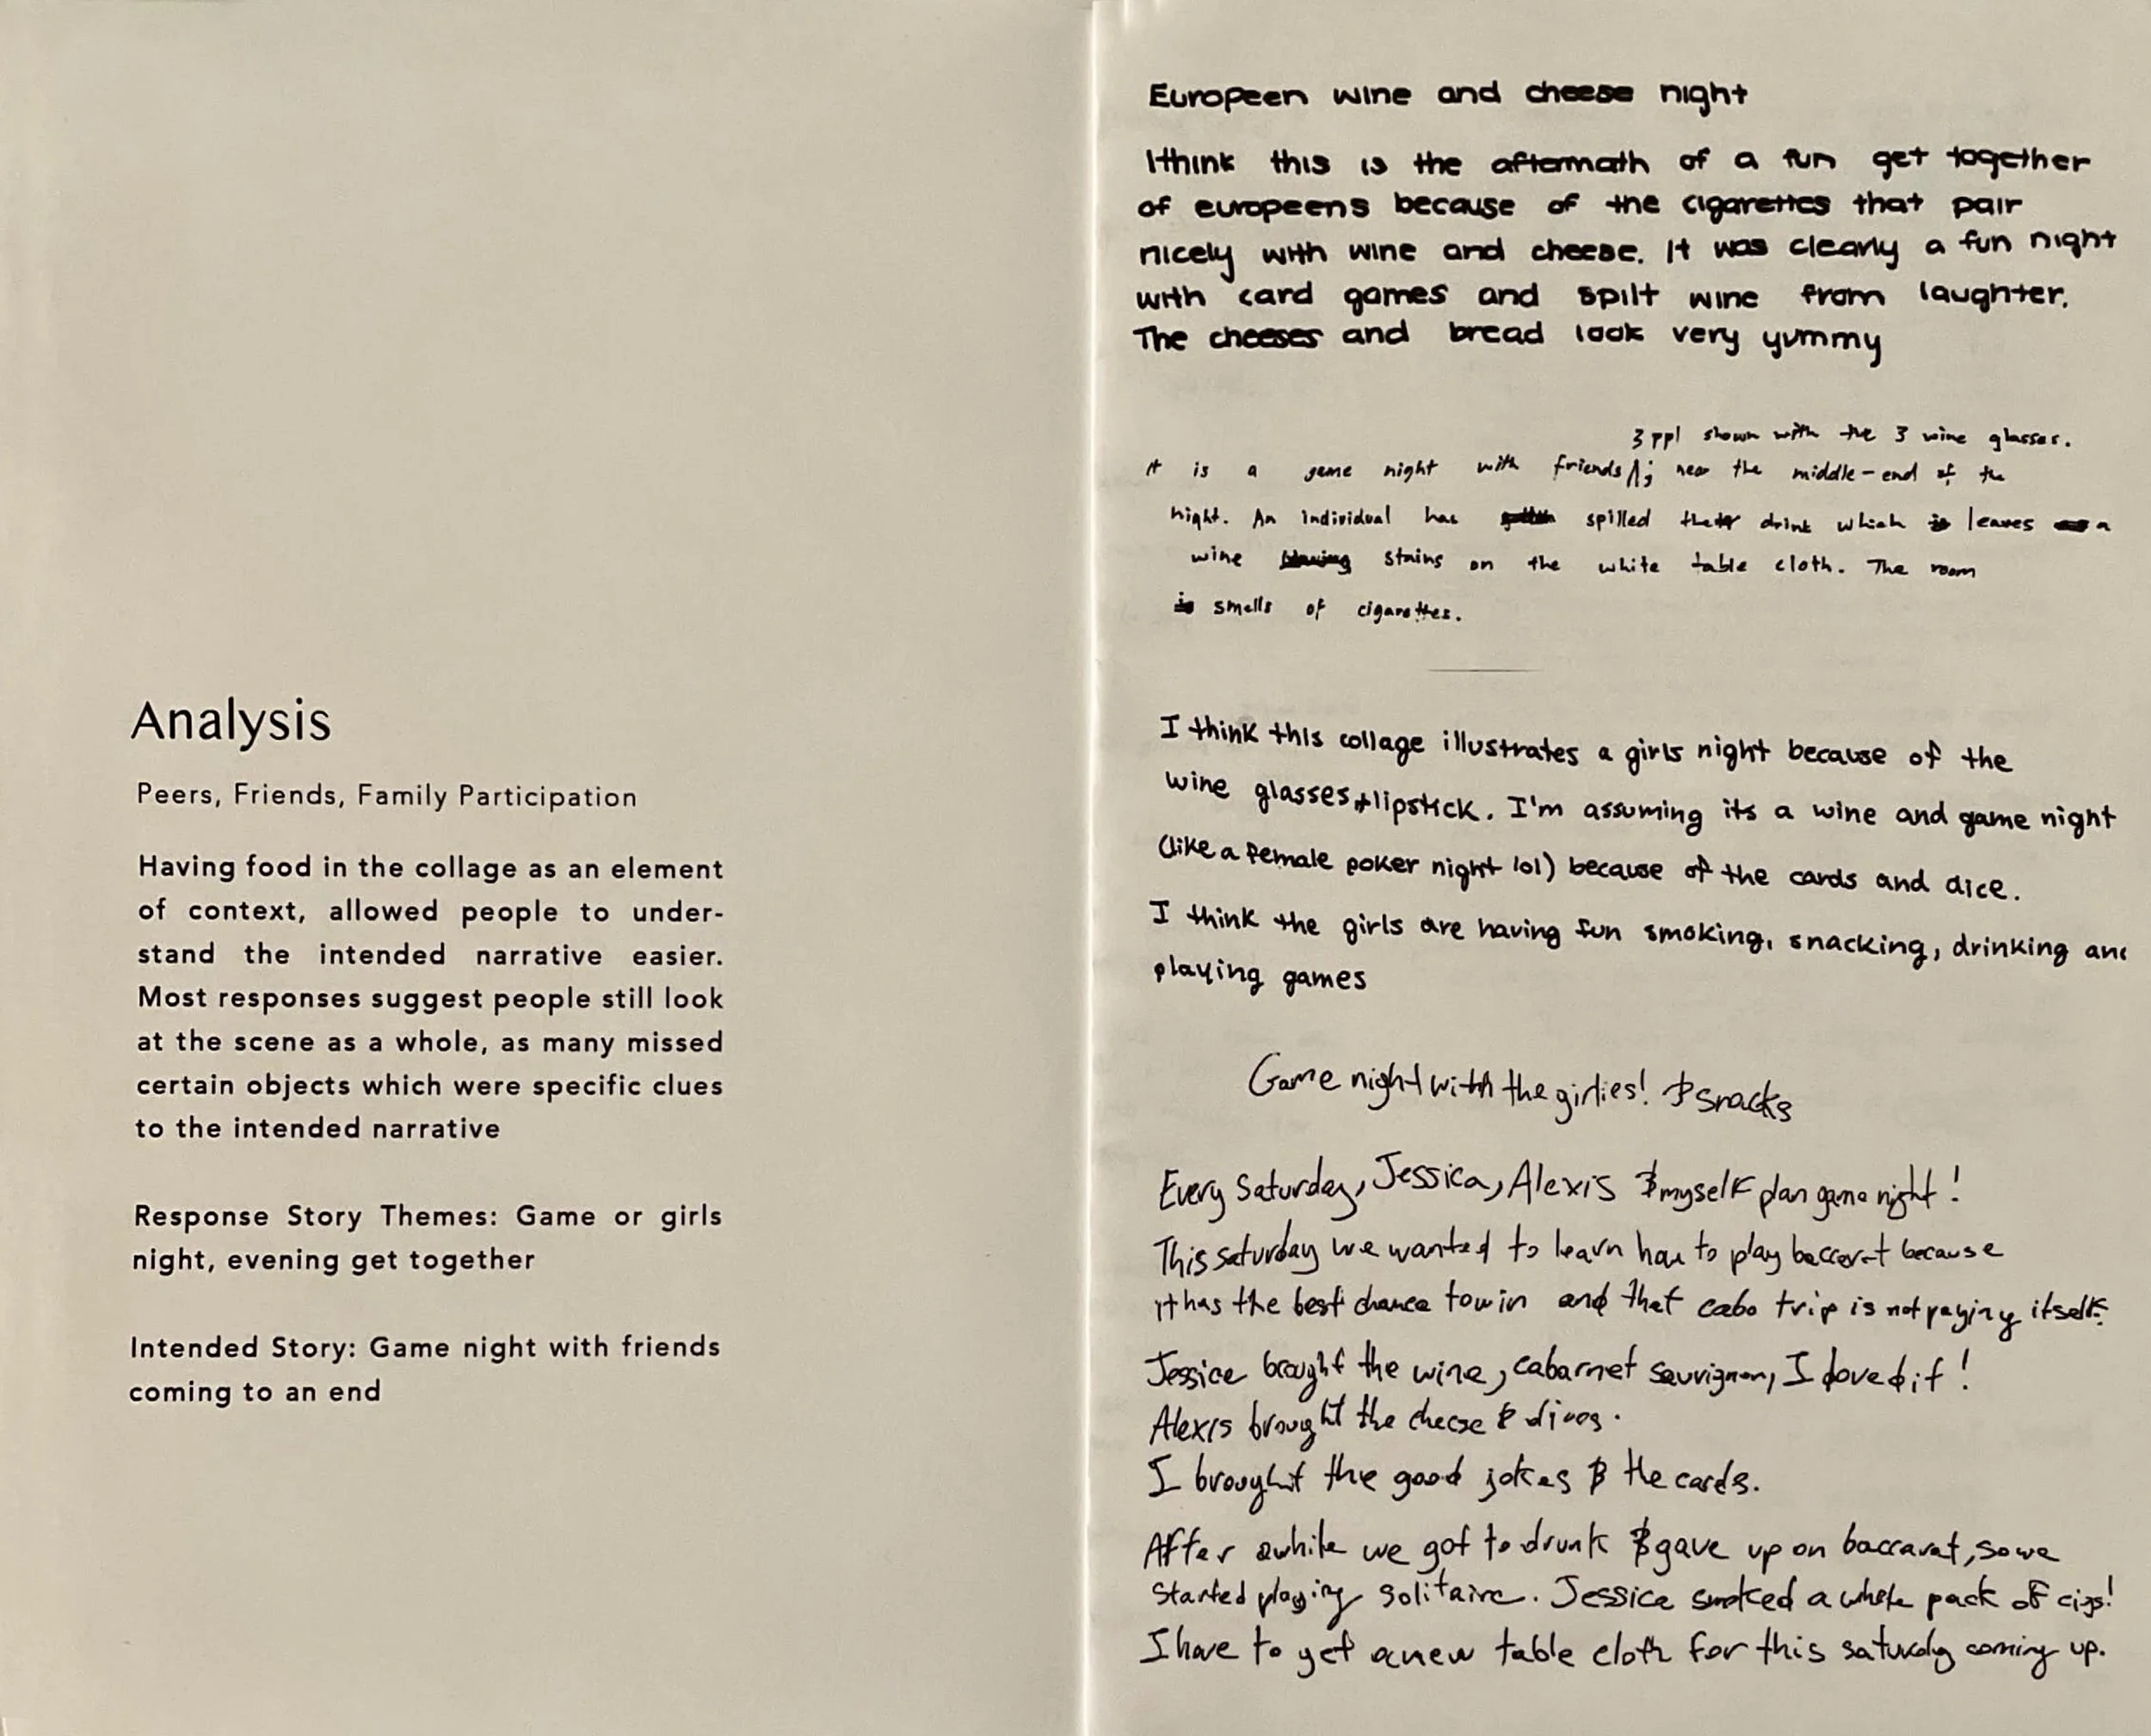 Analysis
Peers, Friends, Family Participation
Having food in the collage as an element
of context, allowed people to under-
stand the intended narrative easier.
Most responses suggest people still look
at the scene as a whole, as many missed
certain objects which were specific clues
to the intended narrative
Response Story Themes: Game or girls
night, evening get together
Intended Story: Game night with friends
coming to an end
Europeen wine and cheese night
I think this is the aftermath of a fun get together
of europeens because of the cigarettes that pair
nicely with wine and cheese. It was clearly a fun night
with card games and spilt wine from laughter.
The cheeses and bread look very yummy
3 ppl shown with the 3 wine glasses.
It is a game night with friends; near the middle-end of the
night. An individual has spilled their drink which leaves a
wine stains on the white table cloth. The room
smells of cigarettes.
I think this collage illustrates a girls night because of the
wine glasses + lipstick. I'm assuming its a wine and game night
(like a female poker night lol) because of the cards and dice.
I think the girls are having fun smoking, snacking, drinking and
playing games
Game night with the girlies! & snacks
Every Saturday, Jessica, Alexis & myself plan game night!
This saturday we wanted to learn how to play baccarat because
it has the best chance to win and that cabo trip is not paying itself.
Jessica brought the wine, cabarnet sauvignon, I loved it!
Alexis brought the cheese &
I brought the good jokes & the cards.
After awhile we got to drunk & gave up on baccarat, so we
started playing solitaire. Jessica smoked a whole pack of cigs!
I have to get a new table cloth for this saturday coming up.